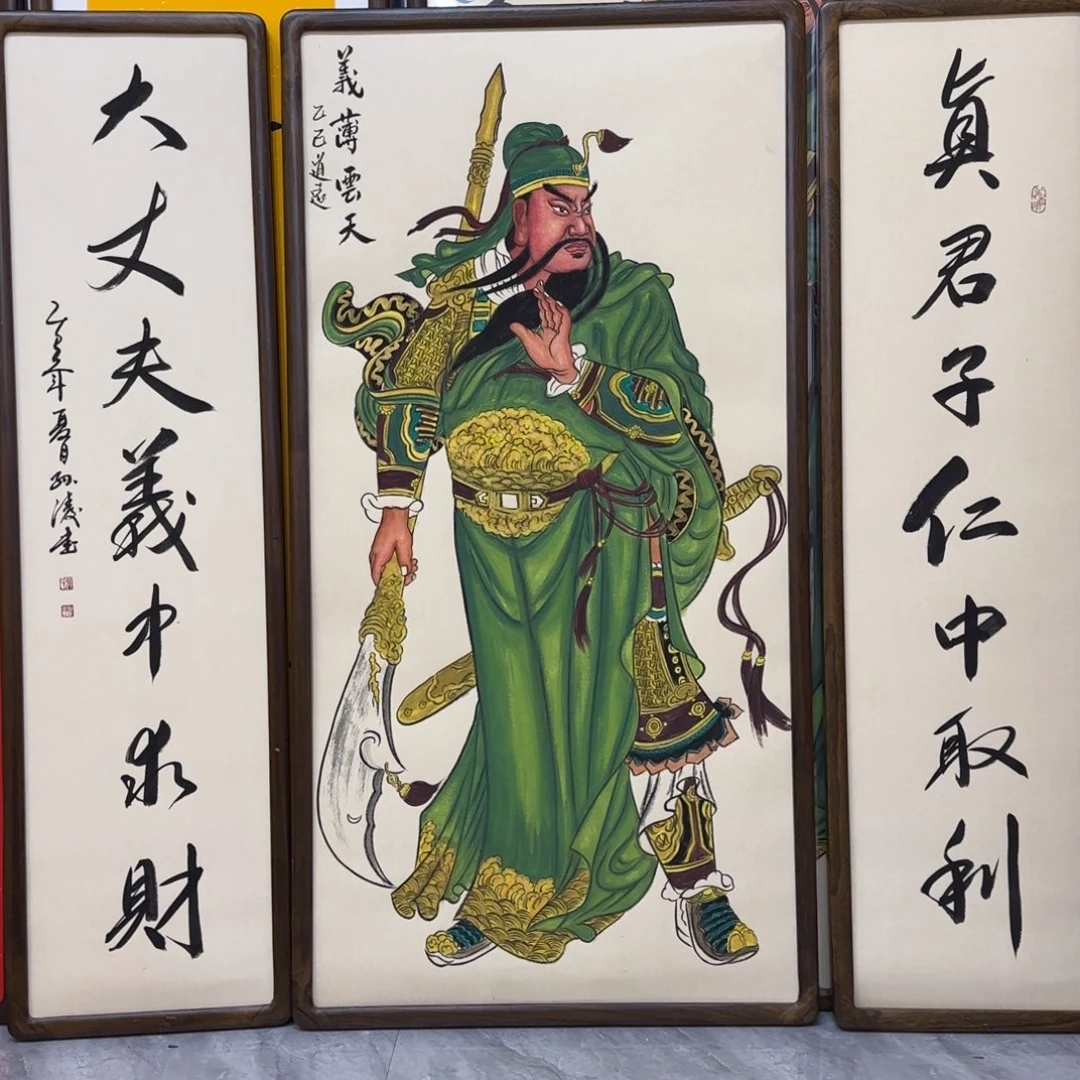 真君子仁中取利
義薄雲天
乙巳道遠
大丈夫義中求財
乙巳年夏日孙書